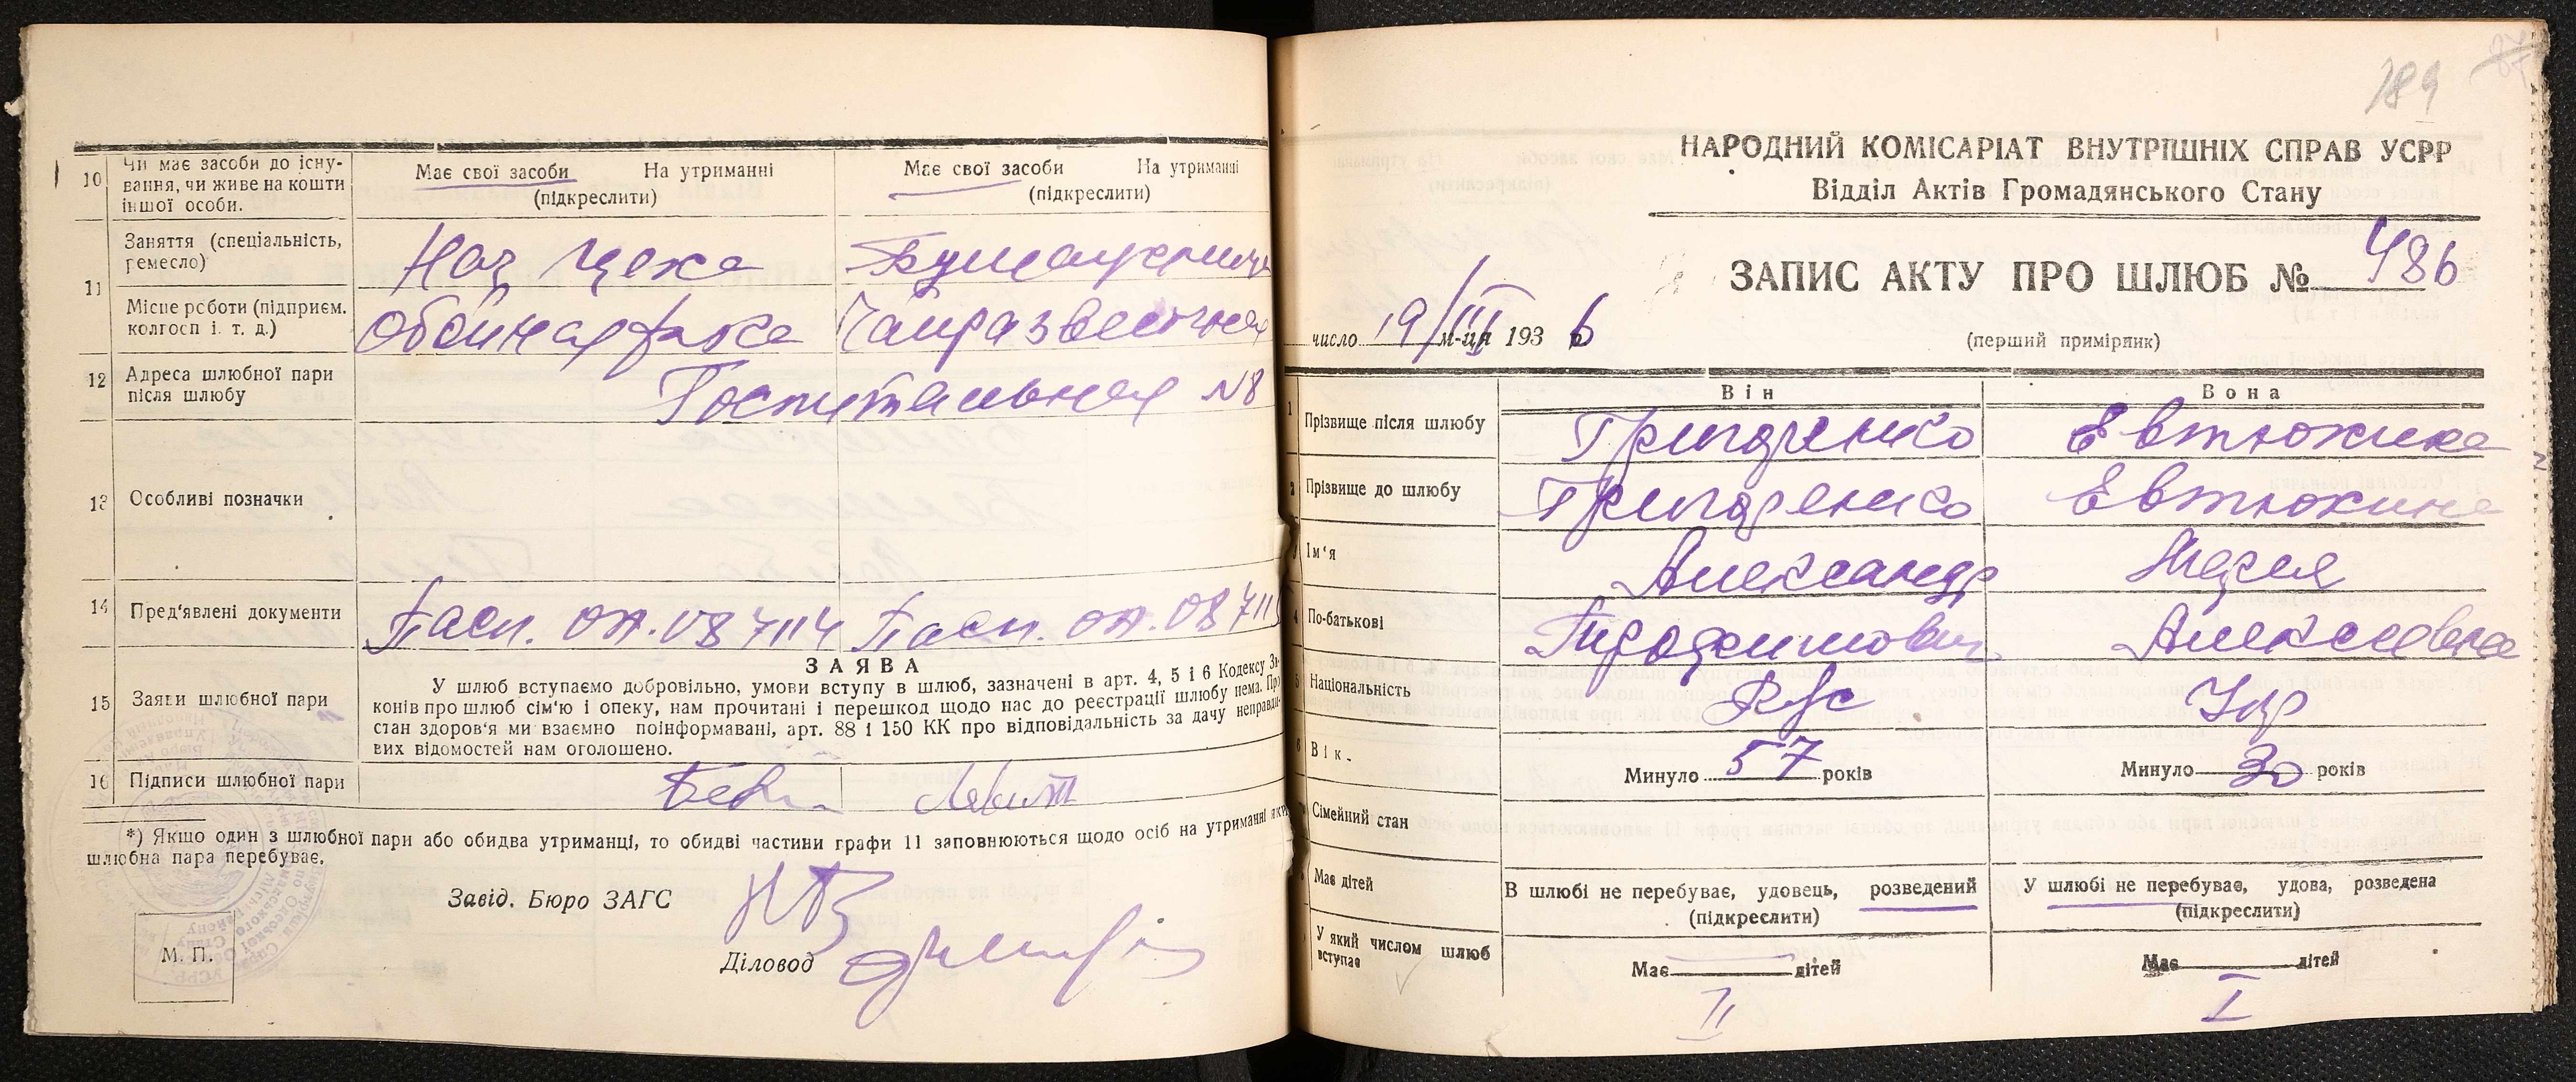 10
Чи має засоби до існу-
вання, чи живе на кошти
іншої особи.
Має свої засоби На утриманні
(підкреслити)
Має свої засоби На утриманні
(підкреслити)
11
Заняття (спеціальність,
ремесло)
Нач цеха
Місце роботи (підприєм.
колгосп і. т. д.)
Обойная фка
Чаеразвесочная
12
Адреса шлюбної пари
після шлюбу
Госпитальная N8
13
Особливі позначки
14
Пред'явлені документи
Пасп. ОА. 087114
Пасп. ОА. 08711
15
Заяви шлюбної пари
ЗАЯВА
У шлюб вступаємо добровільно, умови вступу в шлюб, зазначені в арт. 4, 5 і 6 Кодексу За-
конів про шлюб сім'ю і опеку, нам прочитані і перешкод щодо нас до реєстрації шлюбу нема. Про
стан здоров'я ми взаємно поінформавані, арт. 88 і 150 КК про відповідальність за дачу неправди-
вих відомостей нам оголошено.
16
Підписи шлюбної пари
*) Якщо один з шлюбної пари або обидва утриманці, то обидві частини графи 11 заповнюються щодо осіб на утриманні яких
шлюбна пара перебуває.
Завід. Бюро ЗАГС
Діловод
М. П.
189
87
НАРОДНИЙ КОМІСАРІАТ ВНУТРІШНІХ СПРАВ УСРР
Відділ Актів Громадянського Стану
ЗАПИС АКТУ ПРО ШЛЮБ № 486
число 19/III м-ця 1936
(перший примірник)
Він
Вона
1
Прізвище після шлюбу
Григоренко
Евтюхина
2
Прізвище до шлюбу
Григоренко
Евтюхина
Ім'я
Александр
Мария
4
По-батькові
Трофимович
Алексеевна
5
Національність
Рус
Укр
6
Вік.
Минуло 57 років
Минуло 30 років
Сімейний стан
Має дітей
В шлюбі не перебуває, удовець, розведений
(підкреслити)
У шлюбі не перебуває, удова, розведена
(підкреслити)
У який числом шлюб
вступає
Має дітей
Має дітей
II
I